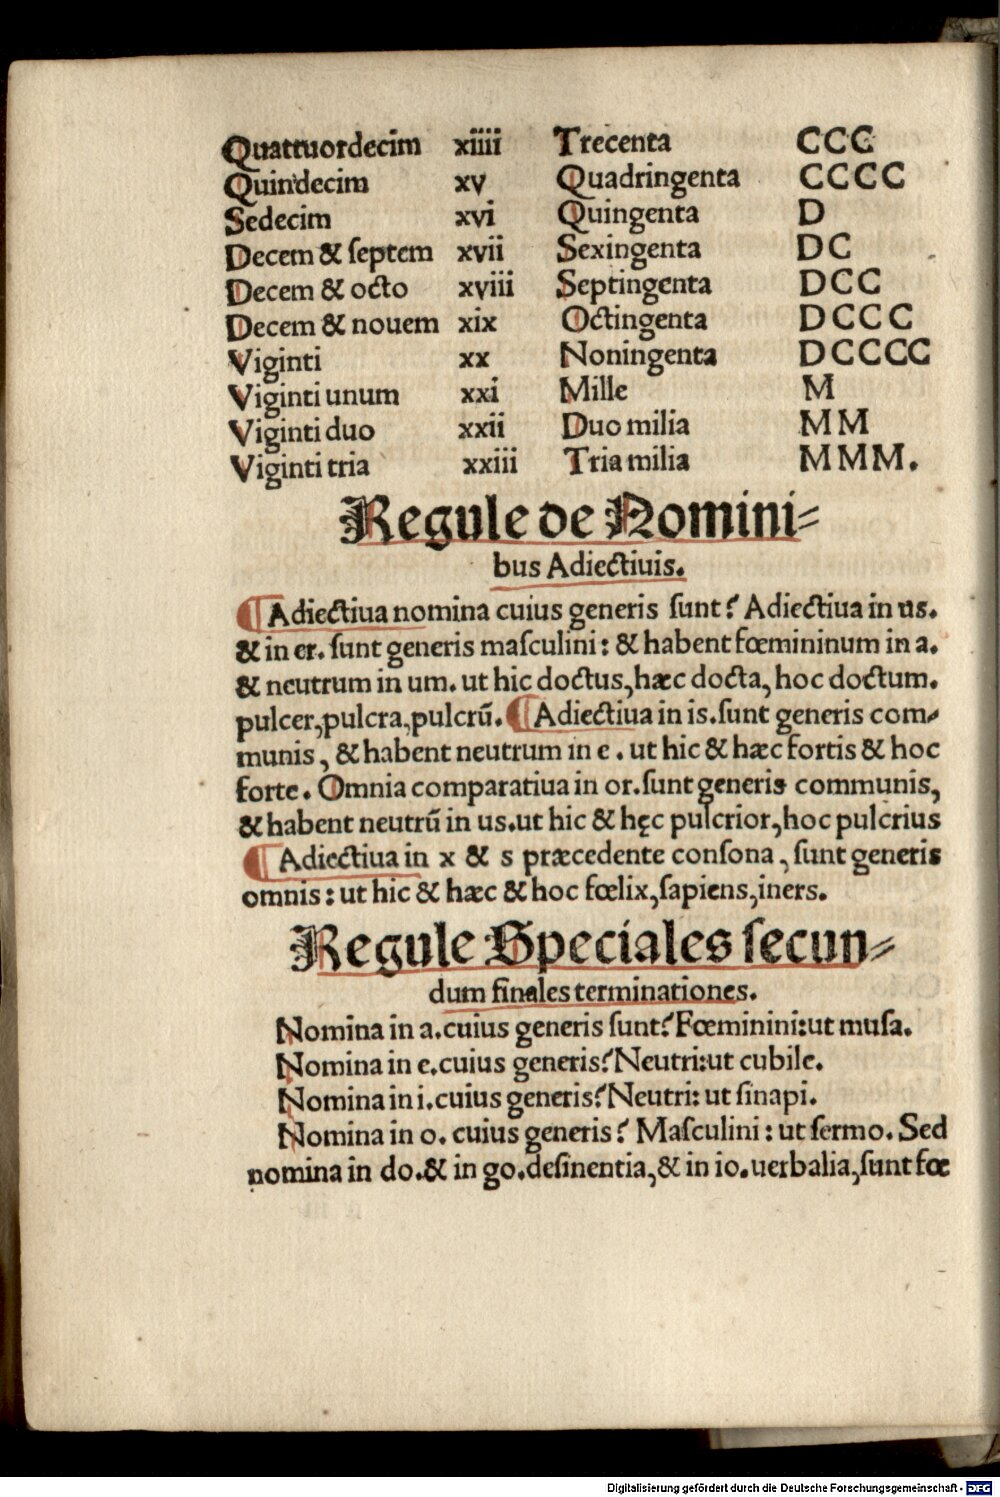 Quattuordecim xiiii Trecenta CCC
Quindecim xv Quadringenta CCCC
Sedecim xvi Quingenta D
Decem & ſeptem xvii Sexingenta DC
Decem & octo xviii Septingenta DCC
Decem & nouem xix Octingenta DCCC
Viginti xx Noningenta DCCCC
Viginti unum xxi Mille M
Viginti duo xxii Duo milia MM
Viginti tria xxiii Tria milia MMM.
Regule de Nomini⸗
bus Adiectiuis.
¶ Adiectiua nomina cuius generis ſunt? Adiectiua in us.
& in er. ſunt generis maſculini: & habent fœmininum in a.
& neutrum in um. ut hic doctus, hæc docta, hoc doctum.
pulcer, pulcra, pulcrū. ¶ Adiectiua in is. ſunt generis com⸗
munis, & habent neutrum in e. ut hic & hæc fortis & hoc
forte. Omnia comparatiua in or. ſunt generis communis,
& habent neutrū in us. ut hic & hęc pulcrior, hoc pulcrius
¶ Adiectiua in x & s præcedente conſona, ſunt generis
omnis: ut hic & hæc & hoc fœlix, ſapiens, iners.
Regule Speciales ſecun⸗
dum finales terminationes.
Nomina in a. cuius generis ſunt? Fœminini: ut muſa.
Nomina in e. cuius generis? Neutri: ut cubile.
Nomina in i. cuius generis? Neutri: ut ſinapi.
Nomina in o. cuius generis? Maſculini: ut ſermo. Sed
nomina in do. & in go. deſinentia, & in io. uerbalia, ſunt fœ
Digitalisierung gefördert durch die Deutsche Forschungsgemeinschaft - DFG